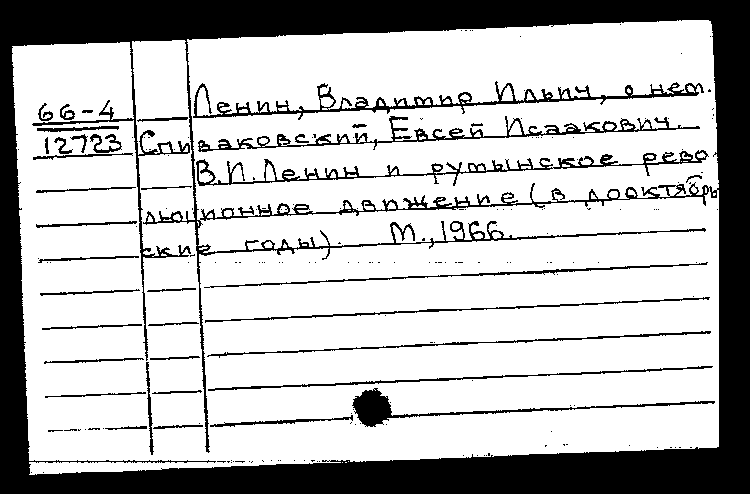 Ленин, Владимир Ильич, о нем.
66-4
12723 Спиваковский, Евсей Исаакович.
В.И.Ленин и румынское рево-
люционное движение (в дооктябрь
ские годы). М., 1966.